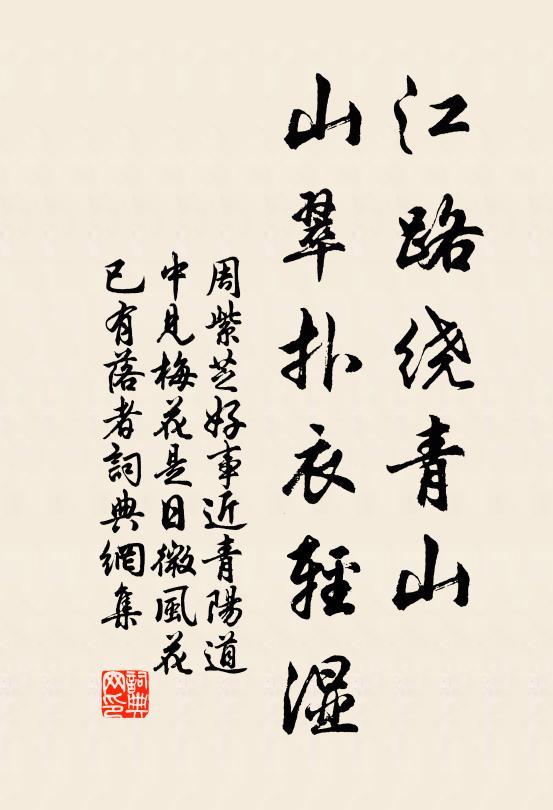 江路绕青山
山翠扑衣轻湿
周紫芝好事近青陽道
中見梅花是日微風花
已有落者詞典網集
詞典
网印